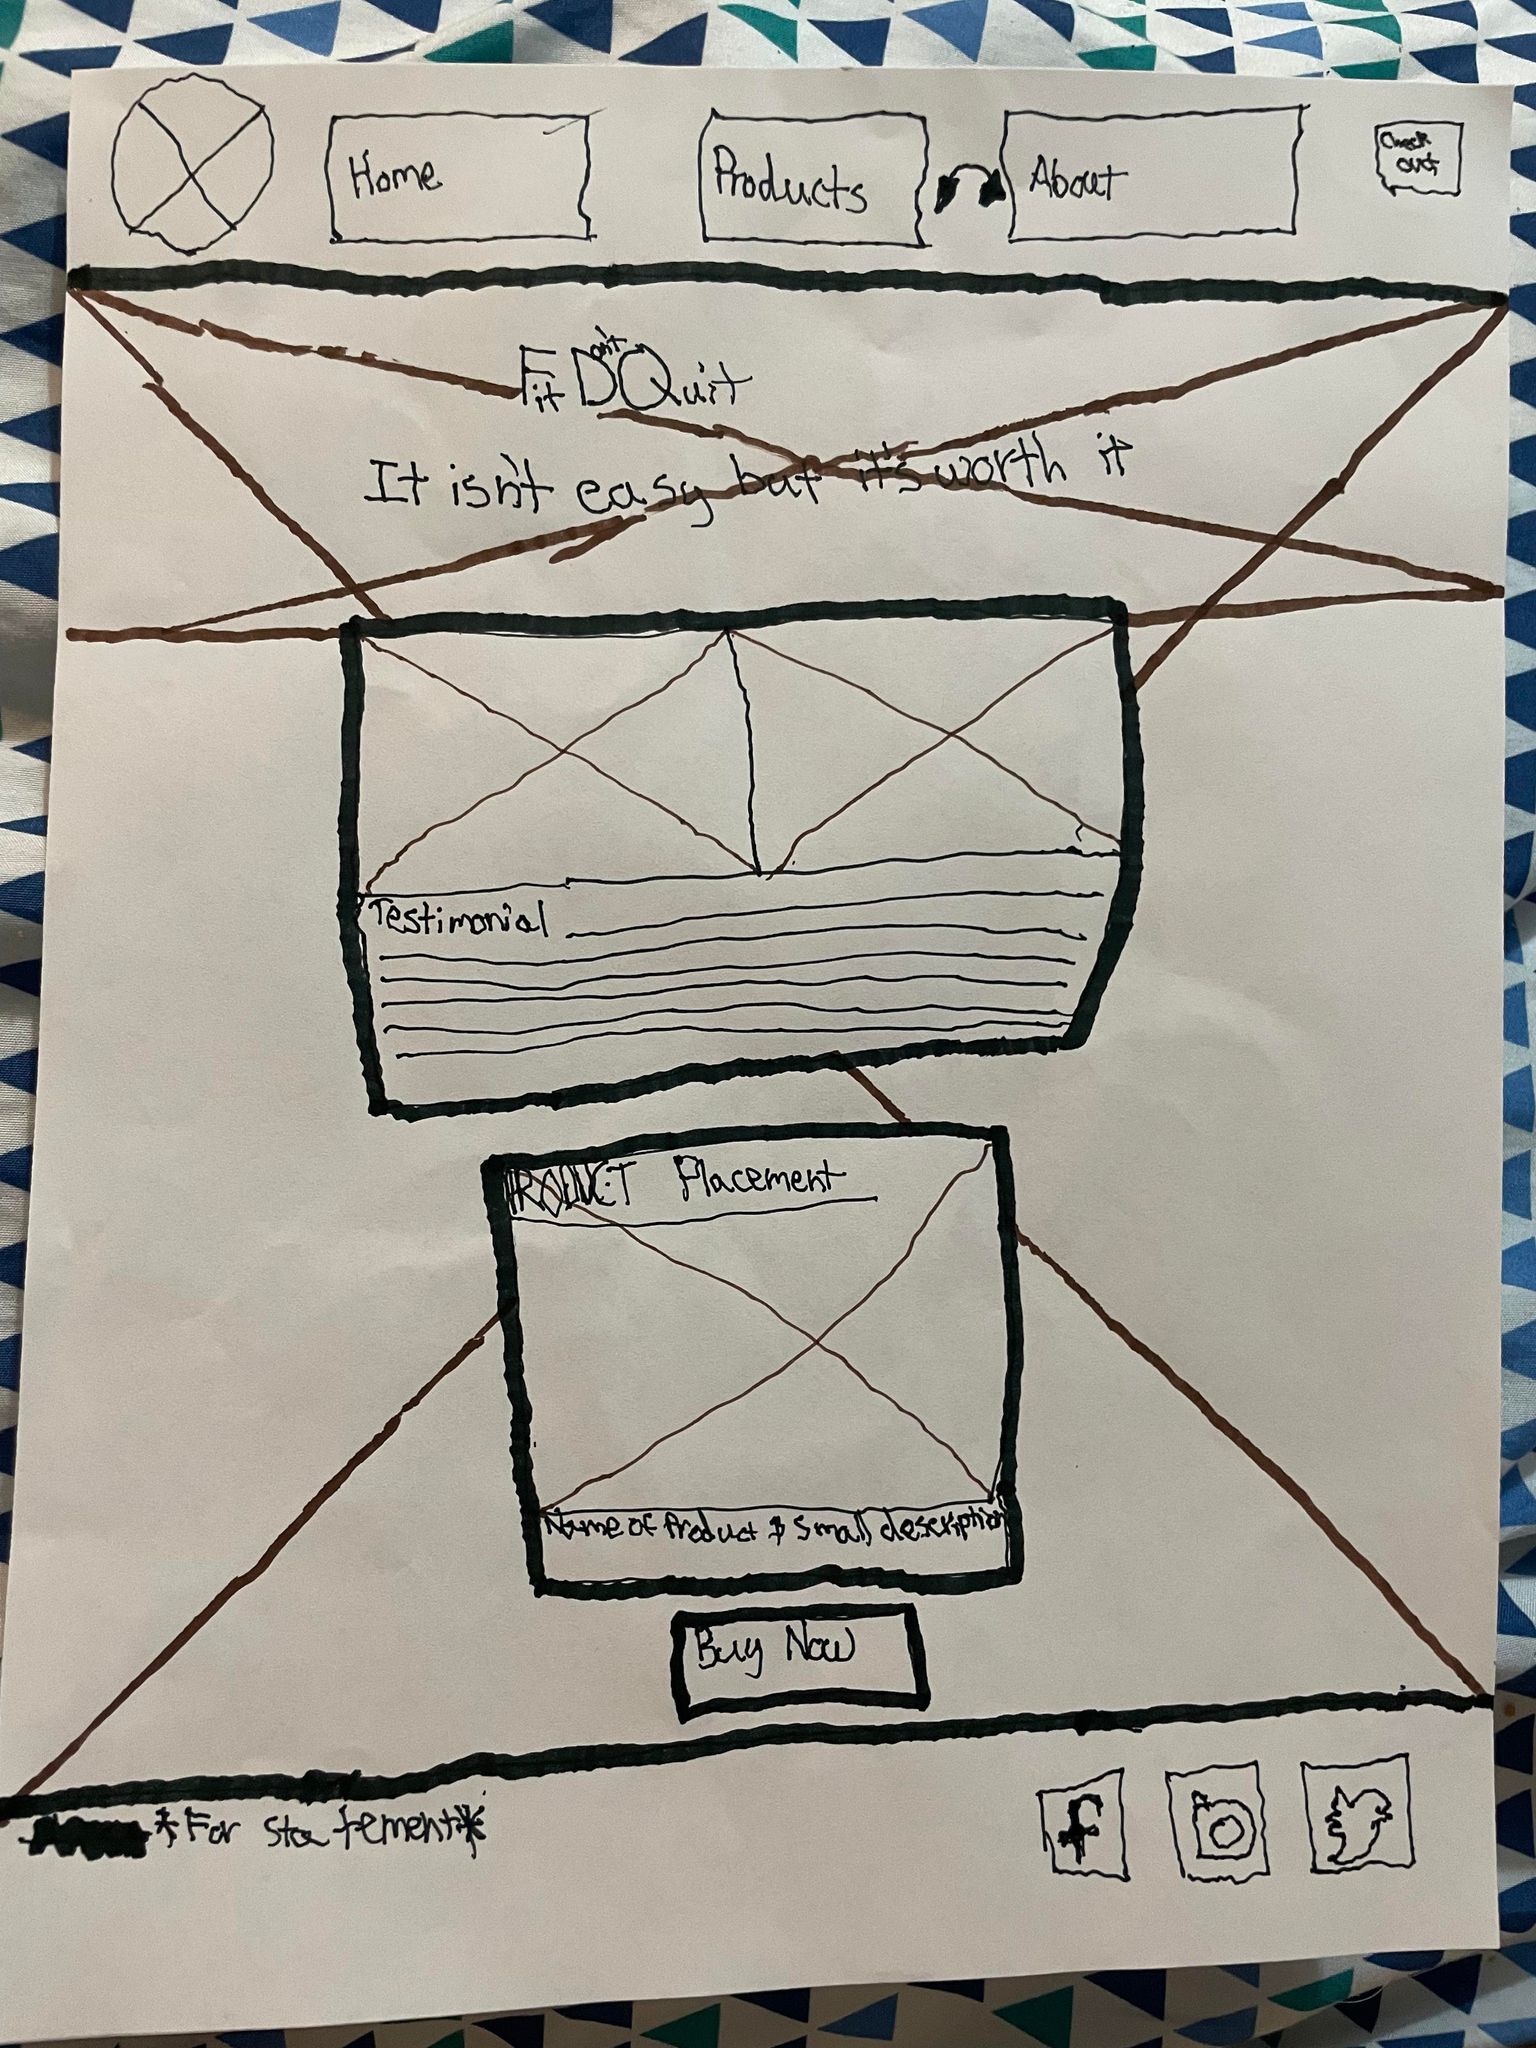 Home
Products
About
Check out
Fit Don't Quit
It isn't easy but it's worth it
Testimonial
PRODUCT Placement
Name of Product & Small description
Buy Now
*For statement*
f